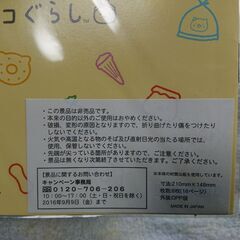 コぐらし™
・この景品は非売品です。
・本来の目的以外のご使用はおやめください。
・破損、変形の原因となりますので、折り曲げたり傷をつけたりしないでください。
・火気や高温となる物のそば及び直射日光の当たる場所では、使用・保管しないでください。
・先端が尖っている箇所がございますので、ご注意ください。
【景品に関するお問い合わせ】
キャンペーン事務局
0120-706-206
10:00~17:00(土・日・祝日を除く)
2016年9月9日(金)まで
寸法:210mm×148mm
枚数:8枚(16ページ)
外装:OPP袋
MADE IN JAPAN